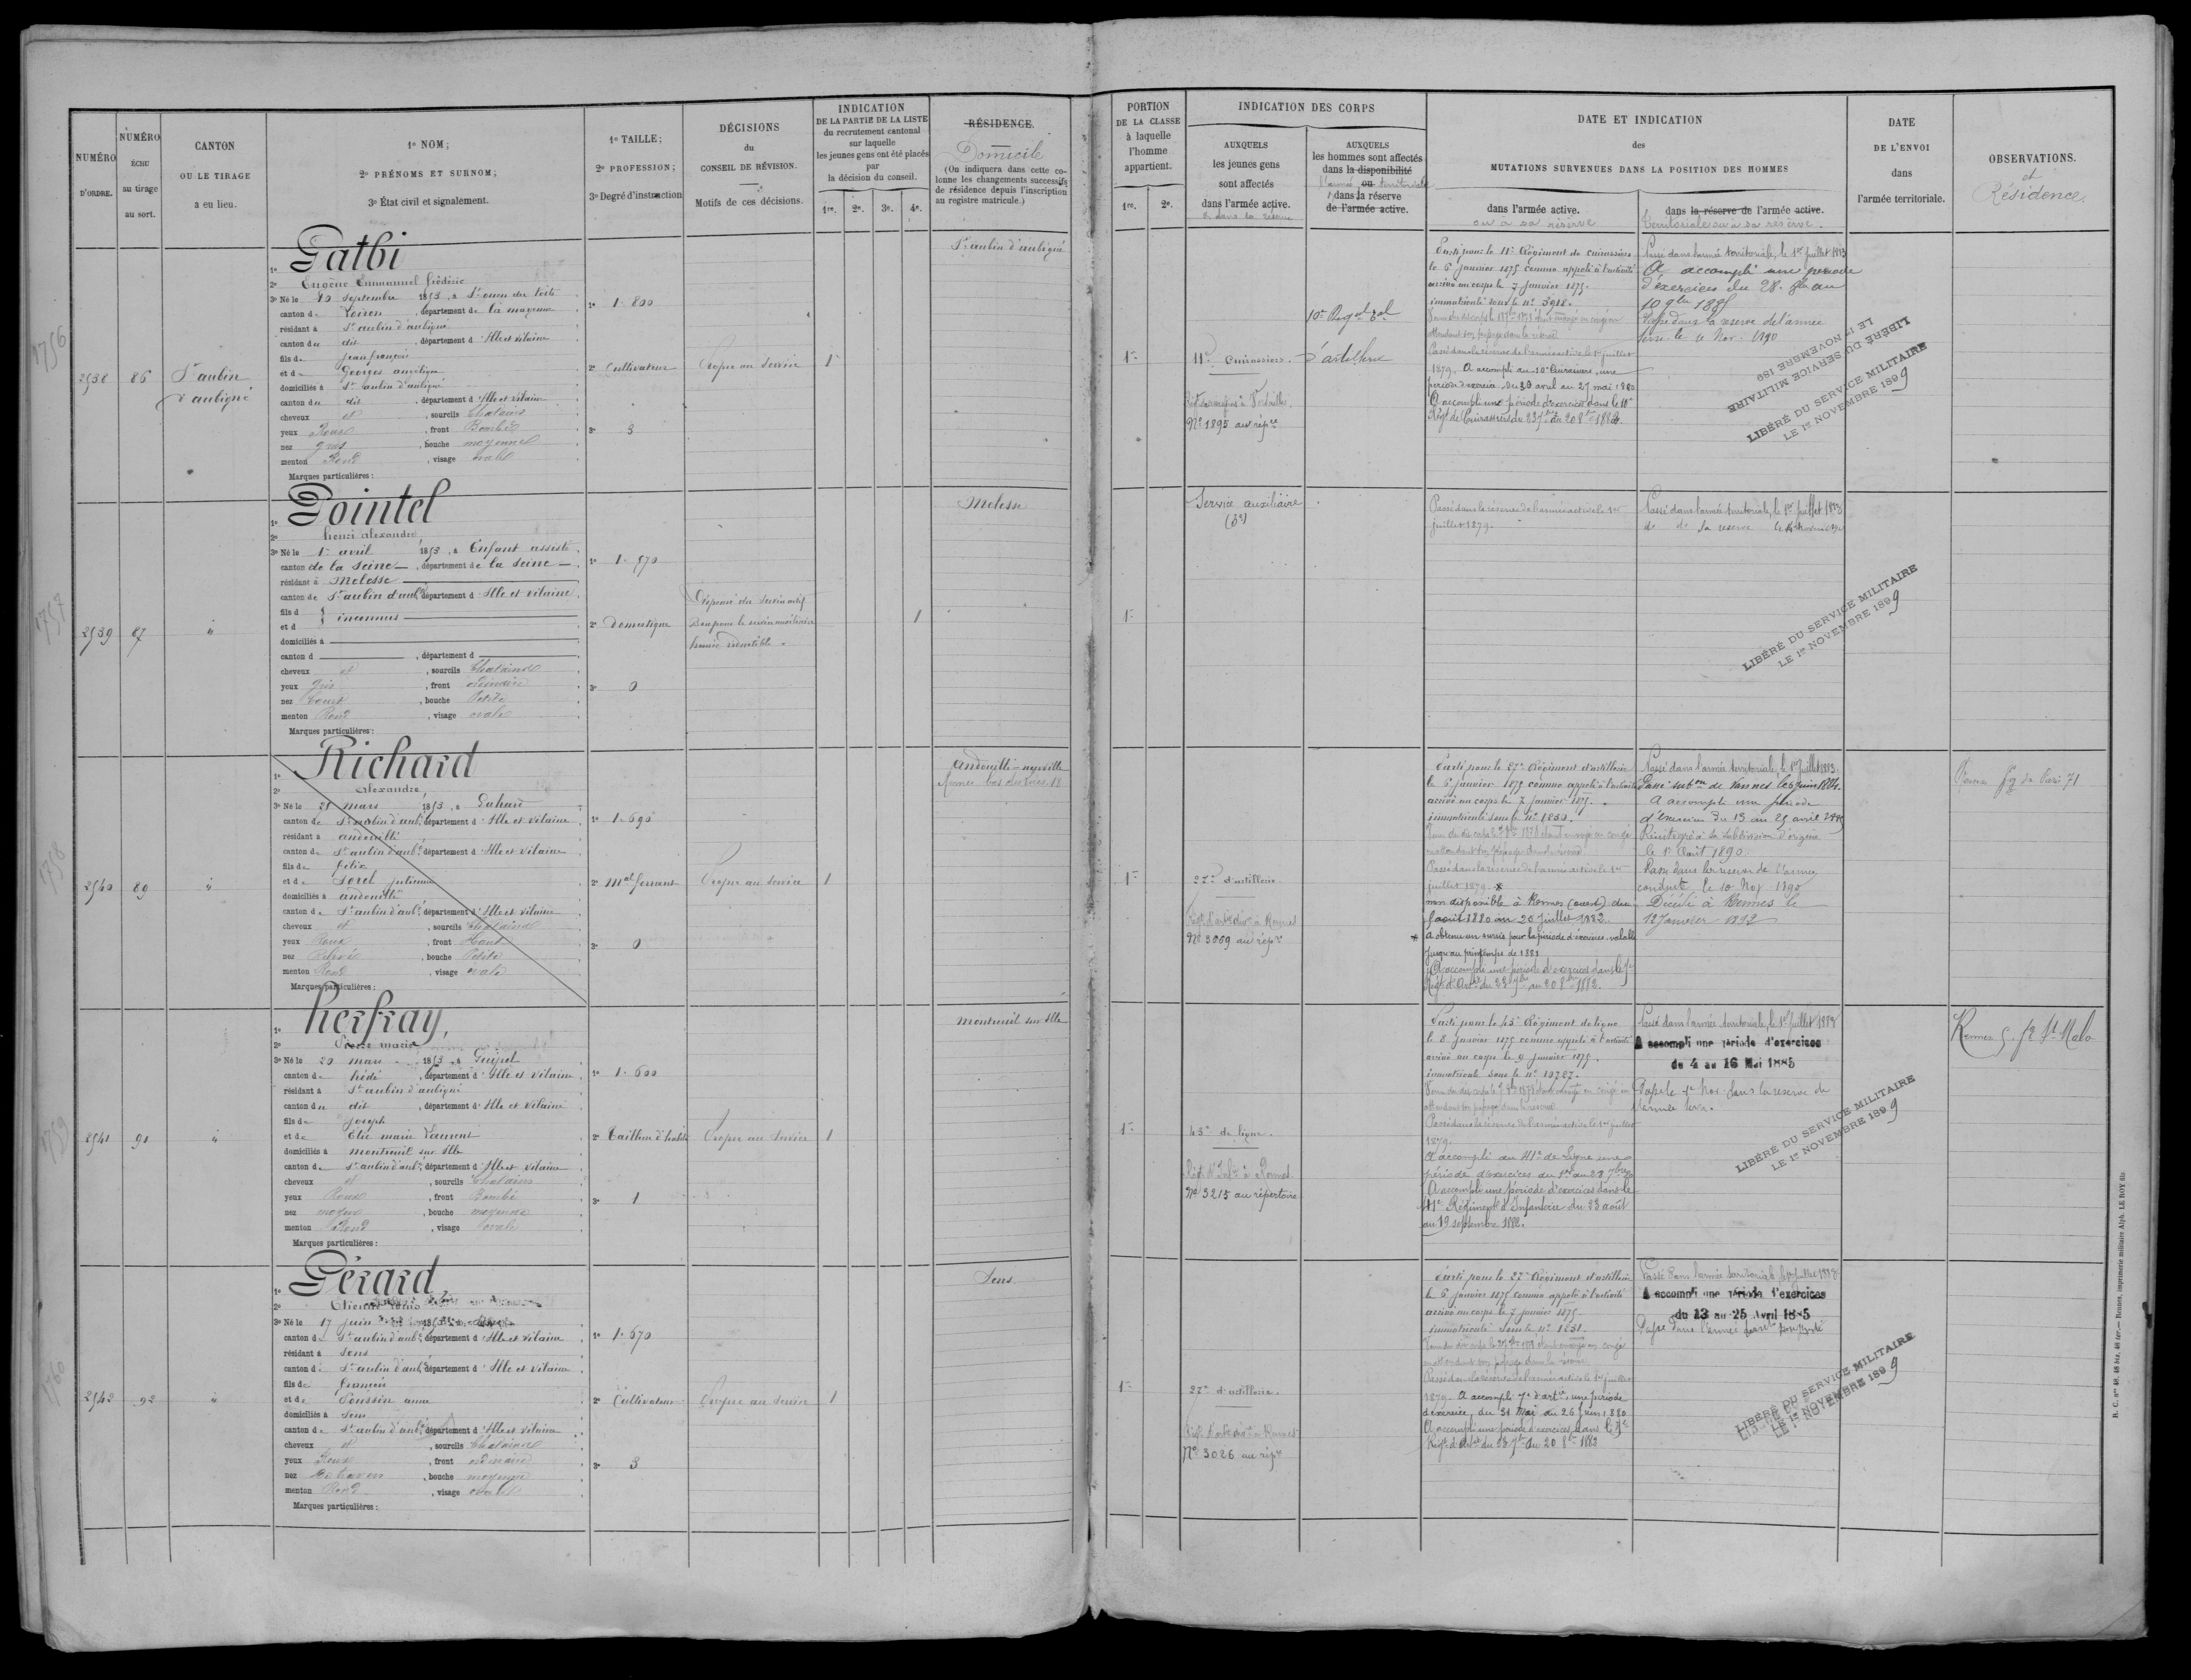 NUMÉRO
D'ORDRE.
NUMÉRO
ÉCHU
au tirage
au sort.
CANTON
OU LE TIRAGE
a eu lieu.
1° NOM;
2° PRÉNOMS ET SURNOM;
3° État civil et signalement.
1° TAILLE;
2° PROFESSION;
3° Degré d'instruction
DÉCISIONS
du
CONSEIL DE RÉVISION.
Motifs de ces décisions.
INDICATION
DE LA PARTIE DE LA LISTE
du recrutement cantonal
sur laquelle
les jeunes gens ont été placés
par
la décision du conseil.
1re. 2e. 3e. 4e.
RÉSIDENCE.
Domicile
(On indiquera dans cette co-
lonne les changements successifs
de résidence depuis l'inscription
au registre matricule.)
PORTION
DE LA CLASSE
à laquelle
l'homme
appartient.
1re. 2e.
INDICATION DES CORPS
AUXQUELS
les jeunes gens
sont affectés
dans l'armée active.
& dans la réserve
AUXQUELS
les hommes sont affectés
dans la disponibilité
ou
l'armée territoriale
dans la réserve
de l'armée active.
DATE ET INDICATION
des
MUTATIONS SURVENUES DANS LA POSITION DES HOMMES
dans l'armée active.
ou à sa réserve
dans la réserve de l'armée active.
territoriale ou à sa réserve.
DATE
DE L'ENVOI
dans
l'armée territoriale.
OBSERVATIONS.
et
Résidence.
1756
2538
86
St aubin
d'aubigné
1° Gatbi
2° Eugène Emmanuel frédéric
3° Né le 20 septembre 1853, a St ouen des toits
canton de Loiron, département de la mayenne
résidant à St aubin d'aubigné
canton du dit, département d'Ille et vilaine
fils de jean françois
et de Georges angélique
domiciliés à St aubin d'aubigné
canton du dit, département d'Ille et vilaine
cheveux et, sourcils Chatains
yeux Roux, front Bombé
nez gros, bouche moyenne
menton Rond, visage ovale
Marques particulières :
1° 1. 800
2° Cultivateur
3° 3
Propre au service
1
St aubin d'aubigné
1re
11e Cuirassiers.
N° 1895 au répre
10e Regt d'artillerie
Parti pour le 11e Régiment de cuirassiers
le 6 janvier 1875 comme appelé à l'activité
arrivé au corps le 7 janvier 1875.
immatriculé sous le n° 3918.
Passé dans la réserve de l'armée active le 1er juillet
1879. A accompli au 10e Cuirassiers, une
période d'exercices du 30 avril au 27 mai 1880
A accompli une période d'exercices dans le 10e
Régt de Cuirassiers du 23 7bre au 20 8bre 1882.
Passé dans l'armée territoriale, le 1er juillet 1883
A accompli une période
d'exercices du 28 8bre au
10 9bre 1885
Passé dans la réserve de l'armée
terre. le 4 Nov. 1890
LIBÉRÉ DU SERVICE MILITAIRE
LE 1er NOVEMBRE 189
LIBÉRÉ DU SERVICE MILITAIRE
LE 1er NOVEMBRE 1899
1757
2539
87
"
1° Pointel
2° henri alexandre
3° Né le 1er avril 1853, a Enfant assisté
canton de la Seine, département de la Seine
résidant à Melesse
canton de St aubin d'aubé, département d'Ille et vilaine
fils d
et d } inconnus
domiciliés à
canton d , département d
cheveux et, sourcils Chatains
yeux Gris, front ordinaire
nez Court, bouche Petite
menton Rond, visage ovale
Marques particulières :
1° 1. 570
2° Domestique
3° 0
Dispensé du service actif
Bon pour le service auxiliaire
hernie réductible
1
Melesse
1re
Service auxiliaire
(3e)
Passé dans la réserve de l'armée active le 1er
juillet 1879.
Passé dans l'armée territoriale, le 1er juillet 1883
do do sa réserve
LIBÉRÉ DU SERVICE MILITAIRE
LE 1er NOVEMBRE 1899
1758
2540
89
"
1° Richard
2° Alexandre
3° Né le 21 mars 1853, a Gahard
canton de St aubin d'aubé, département d'Ille et vilaine
résidant à andouillé
canton de St aubin d'aubé, département d'Ille et vilaine
fils de félix
et de Sorel julienne
domiciliés à andouillé
canton de St aubin d'aubé, département d'Ille et vilaine
cheveux et, sourcils Chatains
yeux Roux, front Haut
nez Relevé, bouche Petite
menton Rond, visage ovale
Marques particulières :
1° 1. 690
2° Mal ferrant
3° 0
Propre au service
1
Andouillé-neuville
1re
27e d'artillerie
N° 3069 au répre
Parti pour le 27e Régiment d'artillerie
le 6 janvier 1875 comme appelé à l'activité
arrivé au corps le 7 janvier 1875.
immatriculé sous le n° 1850.
Passé dans la réserve de l'armée active le 1er
juillet 1879. *
non disponible à Rennes (ouest) du
août 1880 au 20 juillet 1882.
* A obtenu un sursis pour la période d'exercices valable
jusqu'au printemps de 1881
A accompli une période d'exercices dans le 7e
Régt d'Artie du 23 7bre au 20 8bre 1882.
Passé dans l'armée territoriale, le 1er juillet 1883.
Passé subon de Vannes le 6 juin 1884.
A accompli une période
d'exercices du 13 au 25 avril 1885
Réintégré à la subdivision d'origine
le 1er Août 1890
Passé dans la réserve de l'armée
le 10 Nov 1890
Décédé à Rennes le
12 janvier 1892
Rennes fg de Paris 71
1759
2541
91
"
1° herfray,
2° Pierre marie
3° Né le 20 mars 1853, a Guipel
canton de hédé, département d'Ille et vilaine
résidant à St aubin d'aubigné
canton du dit, département d'Ille et vilaine
fils de joseph
et de Elie marie Laurent
domiciliés à montreuil sur Ille
canton de St aubin d'aubé, département d'Ille et vilaine
cheveux et, sourcils Chatains
yeux Roux, front Bombé
nez moyen, bouche moyenne
menton Rond, visage ovale
Marques particulières :
1° 1. 600
2° Tailleur d'habits
3° 1
Propre au service
1
Montreuil sur Ille
1re
43e de ligne.
Régt d'Infie à Rennes
N° 3215 au répertoire
Parti pour le 43e Régiment de ligne
le 8 janvier 1875 comme appelé à l'activité
arrivé au corps le 9 janvier 1875.
immatriculé sous le n° 10787.
Passé dans la réserve de l'armée active le 1er juillet
1879.
A accompli au 41e de Ligne une
période d'exercices du 1er au 28 7bre 80
A accompli une période d'exercices dans le
41e Régiment d'Infanterie du 23 août
au 19 septembre 1882.
Passé dans l'armée territoriale, le 1er juillet 1883
A accompli une période d'exercices
du 4 au 16 Mai 1885
Passé le 1er Nov. dans la réserve de
l'armée terre.
LIBÉRÉ DU SERVICE MILITAIRE
LE 1er NOVEMBRE 1899
Rennes St Malo
1760
2542
92
"
1° Gérard
2° Etienne Louis
3° Né le 17 juin 1853
canton de St aubin d'aubé, département d'Ille et vilaine
résidant à Sens
canton de St aubin d'aubé, département d'Ille et vilaine
fils de françois
et de Poussin anne
domiciliés à Sens
canton de St aubin d'aubé, département d'Ille et vilaine
cheveux et, sourcils Chatains
yeux Roux, front ordinaire
nez , bouche moyenne
menton Rond, visage ovale
Marques particulières :
1° 1. 670
2° Cultivateur
3° 3
Propre au service
1
Sens
1re
27e d'artillerie.
N° 3026 au répre
Parti pour le 27e Régiment d'artillerie
le 6 janvier 1875 comme appelé à l'activité
arrivé au corps le 7 janvier 1875
immatriculé sous le n° 1851.
Passé dans la réserve de l'armée active le 1er juillet
1879. A accompli 7e d'artie, une période
d'exercice, du 31 Mai au 26 juin 1880
A accompli une période d'exercices dans le 7e
Régt d'Artie du 23 7bre au 20 8bre 1882
Passé dans l'armée territoriale, le 1er juillet 1883
A accompli une période d'exercices
du 13 au 25 Avril 1885
LIBÉRÉ DU SERVICE MILITAIRE
LE 1er NOVEMBRE 1899
R. C., nos 48, 48 bis, 48 ter. — Rennes, imprimerie militaire Alph. LE ROY fils